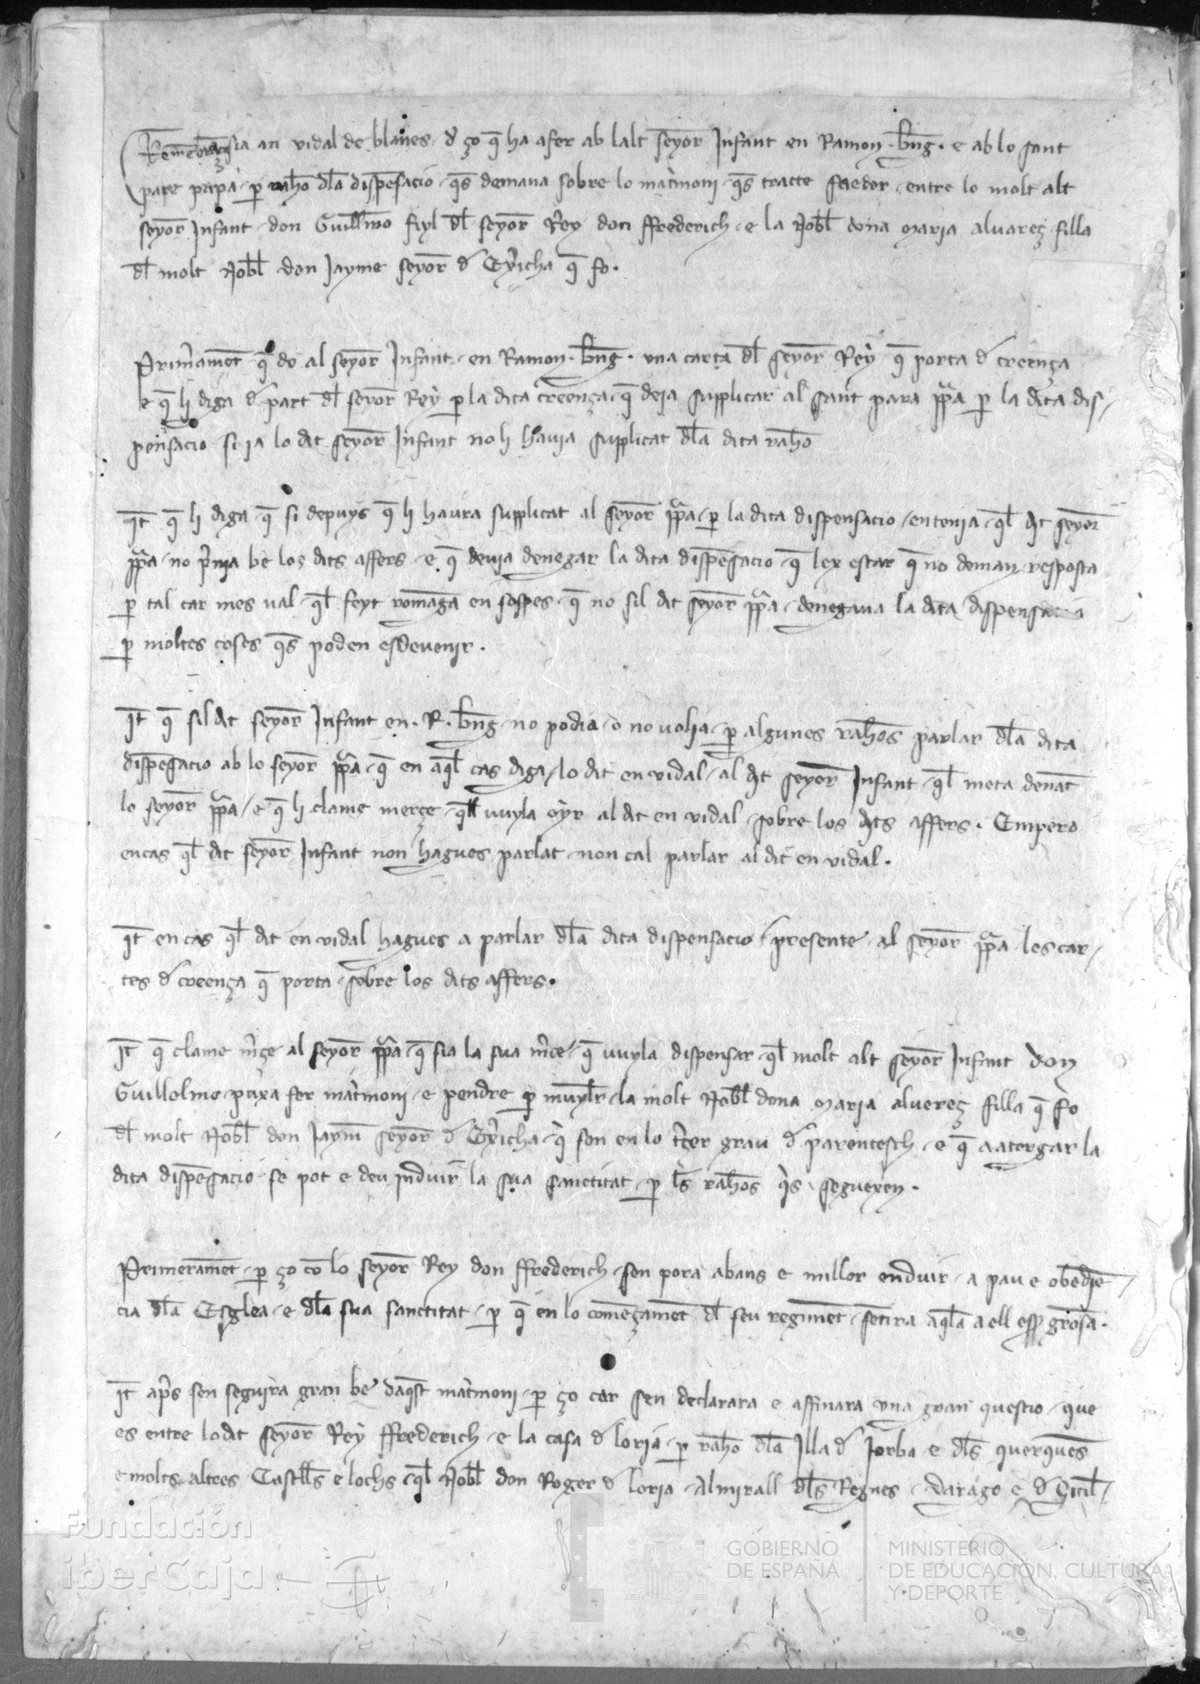 Remenbrança sia an vidal de blanes d ço q̄ ha afer ab lalt seyor Infant en Ramon · bn̄g · e ab lo sant
pare papa · ꝑ raho dl̄a dispēsacio · qs̄ demana sobre lo mat̓moni · qs̄ tracte faedor · entre lo molt alt
seyor Infant · don Guill̄mo fiyl dl̄ seyor Rey don ffrederich · e la Nobl̄ dona Maria alvareç filla
dl̄ molt Nobl̄ don Jayme seyor d Ex̓icha q̄ fo ·
Prim̓amēt · q̄ do al seyor Infant · en Ramon · bn̄g · una carta dl̄ seyor Rey q̄ porta d creença
e q̄ li diga d part dl̄ seyor Rey ꝑ la dita creença · q̄ deja supplicar al sant para pp̄a ꝑ la dita dis-
pensacio si ja lo dit seyor Infant no li havia supplicat dl̄a dita raho
It̄ q̄ li diga · q̄ si depuys q̄ li haura supplicat al seyor pp̄a · ꝑ la dita dispensacio · entenia · ql̄ dit seyor
pp̄a · no p̓nia be los dits affers · e q̄ devia denegar la dita dispēsacio · q̄ lex estar q̄ no deman resposta
ꝑ tal car mes val · ql̄ feyt romāga en sospes · q̄ no sil dit seyor pp̄a · denegava la dita dispensacio
ꝑ moltes coses qs̄ poden esdevenir ·
It̄ q̄ sil dit seyor Infant en · R · bn̄g · no podia · o no volia · ꝑ algunes rahōs parlar dl̄a dita
dispēsacio ab lo seyor pp̄a · q̄ en aql̄ cas diga · lo dit en vidal · al dit seyor Infant · ql̄ meta denāt
lo seyor pp̄a · e q̄ li clame merçe · ql̄l vuyla oyr al dit en vidal · sobre los dits affers · Empero
encas ql̄ dit seyor Infant non hagues parlat · non cal parlar al dit en vidal ·
It̄ en cas ql̄ dit en vidal hagues a parlar dl̄a dita dispensacio · presente · al seyor pp̄a les car-
tes d creença q̄ porta · sobre los dits affers ·
It̄ q̄ clame m̓çe · al seyor pp̄a · q̄ sia la sua m̓ce · q̄ vuyla dispensar · ql̄ molt alt seyor Infant don
Guillolmo · puxa fer mat̓moni · e pendre ꝑ muyl̄r · la molt Nobl̄ dona Maria alvereç filla q̄ fo
dl̄ molt Nobl̄ don Jaym̄ seyor d Ex̓icha · q̓ son en lo t̓çer grau d parentesch · e q̄ a atorgar la
dita dispēsacio · se pot e deu induir la sua sanctitat · ꝑ ls̄ rahōs q̓s · seguexen ·
Primeramēt · ꝑ ço cō lo seyor Rey don ffrederich · sen pora abans e millor enduir · a pau e obediē-
cia dl̄a Esglea · e dl̄a sua sanctitat · ꝑ q̄ en lo começamēt dl̄ seu regimēt · sētira aql̄a a ell esp̄ grosa ·
It̄ apr̄s sen seguira gran be daqst̄ mat̓moni · ꝑ ço car sen declarara e affinara una gran questio · que
es entre lo dit seyor Rey ffrederich · e la casa d loria · ꝑ raho dl̄a Illa d Jerba e dl̄s querquēs
e molts altres Castll̄s e lochs · ql̄ Nobl̄ don Roger d loria · Almirall dl̄s Regnes · darago e d Sicil-
Fundación
iberCaja
GOBIERNO
DE ESPAÑA
MINISTERIO
DE EDUCACIÓN, CULTURA
Y DEPORTE